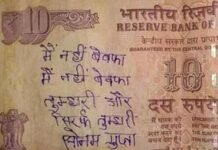 10
भारतीय रिज़र्व
RESERVE BANK OF
केन्द्रीय सरकार द्वारा
GUARANTEED BY THE CENTRAL
मैं नहीं बेवफा
मैं नहीं बेवफा
तुम्हारी और
सिर्फ तुम्हारी
सोनम गुप्ता
10
दस रुपये